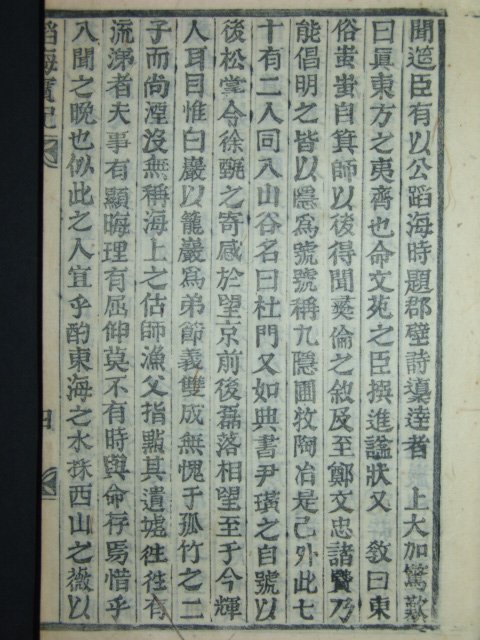 聞筵臣有以公蹈海時題郡壁詩藁達者　上大加驚歎
曰眞東方之夷齊也命文苑之臣撰進諡狀又　敎曰東
俗蚩蚩自箕師以後得聞彛倫之敘及至鄭文忠諸賢乃
能倡明之皆以隱爲號號稱九隱圃牧陶冶是已外此七
十有二人同入山谷名曰杜門又如典書尹璜之自號以
後松堂令徐甄之寄感於望京前後磊落相望至于今輝
人耳目惟白巖以籠巖爲弟節義雙成無愧于孤竹之二
子而尙湮沒無稱海上之估師漁父指點其遺墟徃徃有
流涕者夫事有顯晦理有屈仰莫不有時與命存焉惜乎
八聞之晚也似此之人宜乎酌東海之水採西山之薇以
蹈海實記　四